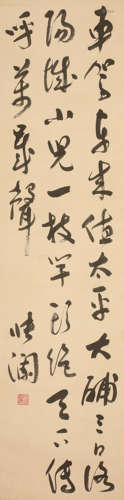 車駕東來值太平大酺三日洛
陽城小兒一枝竿頭絕天下傳
呼萬歲聲